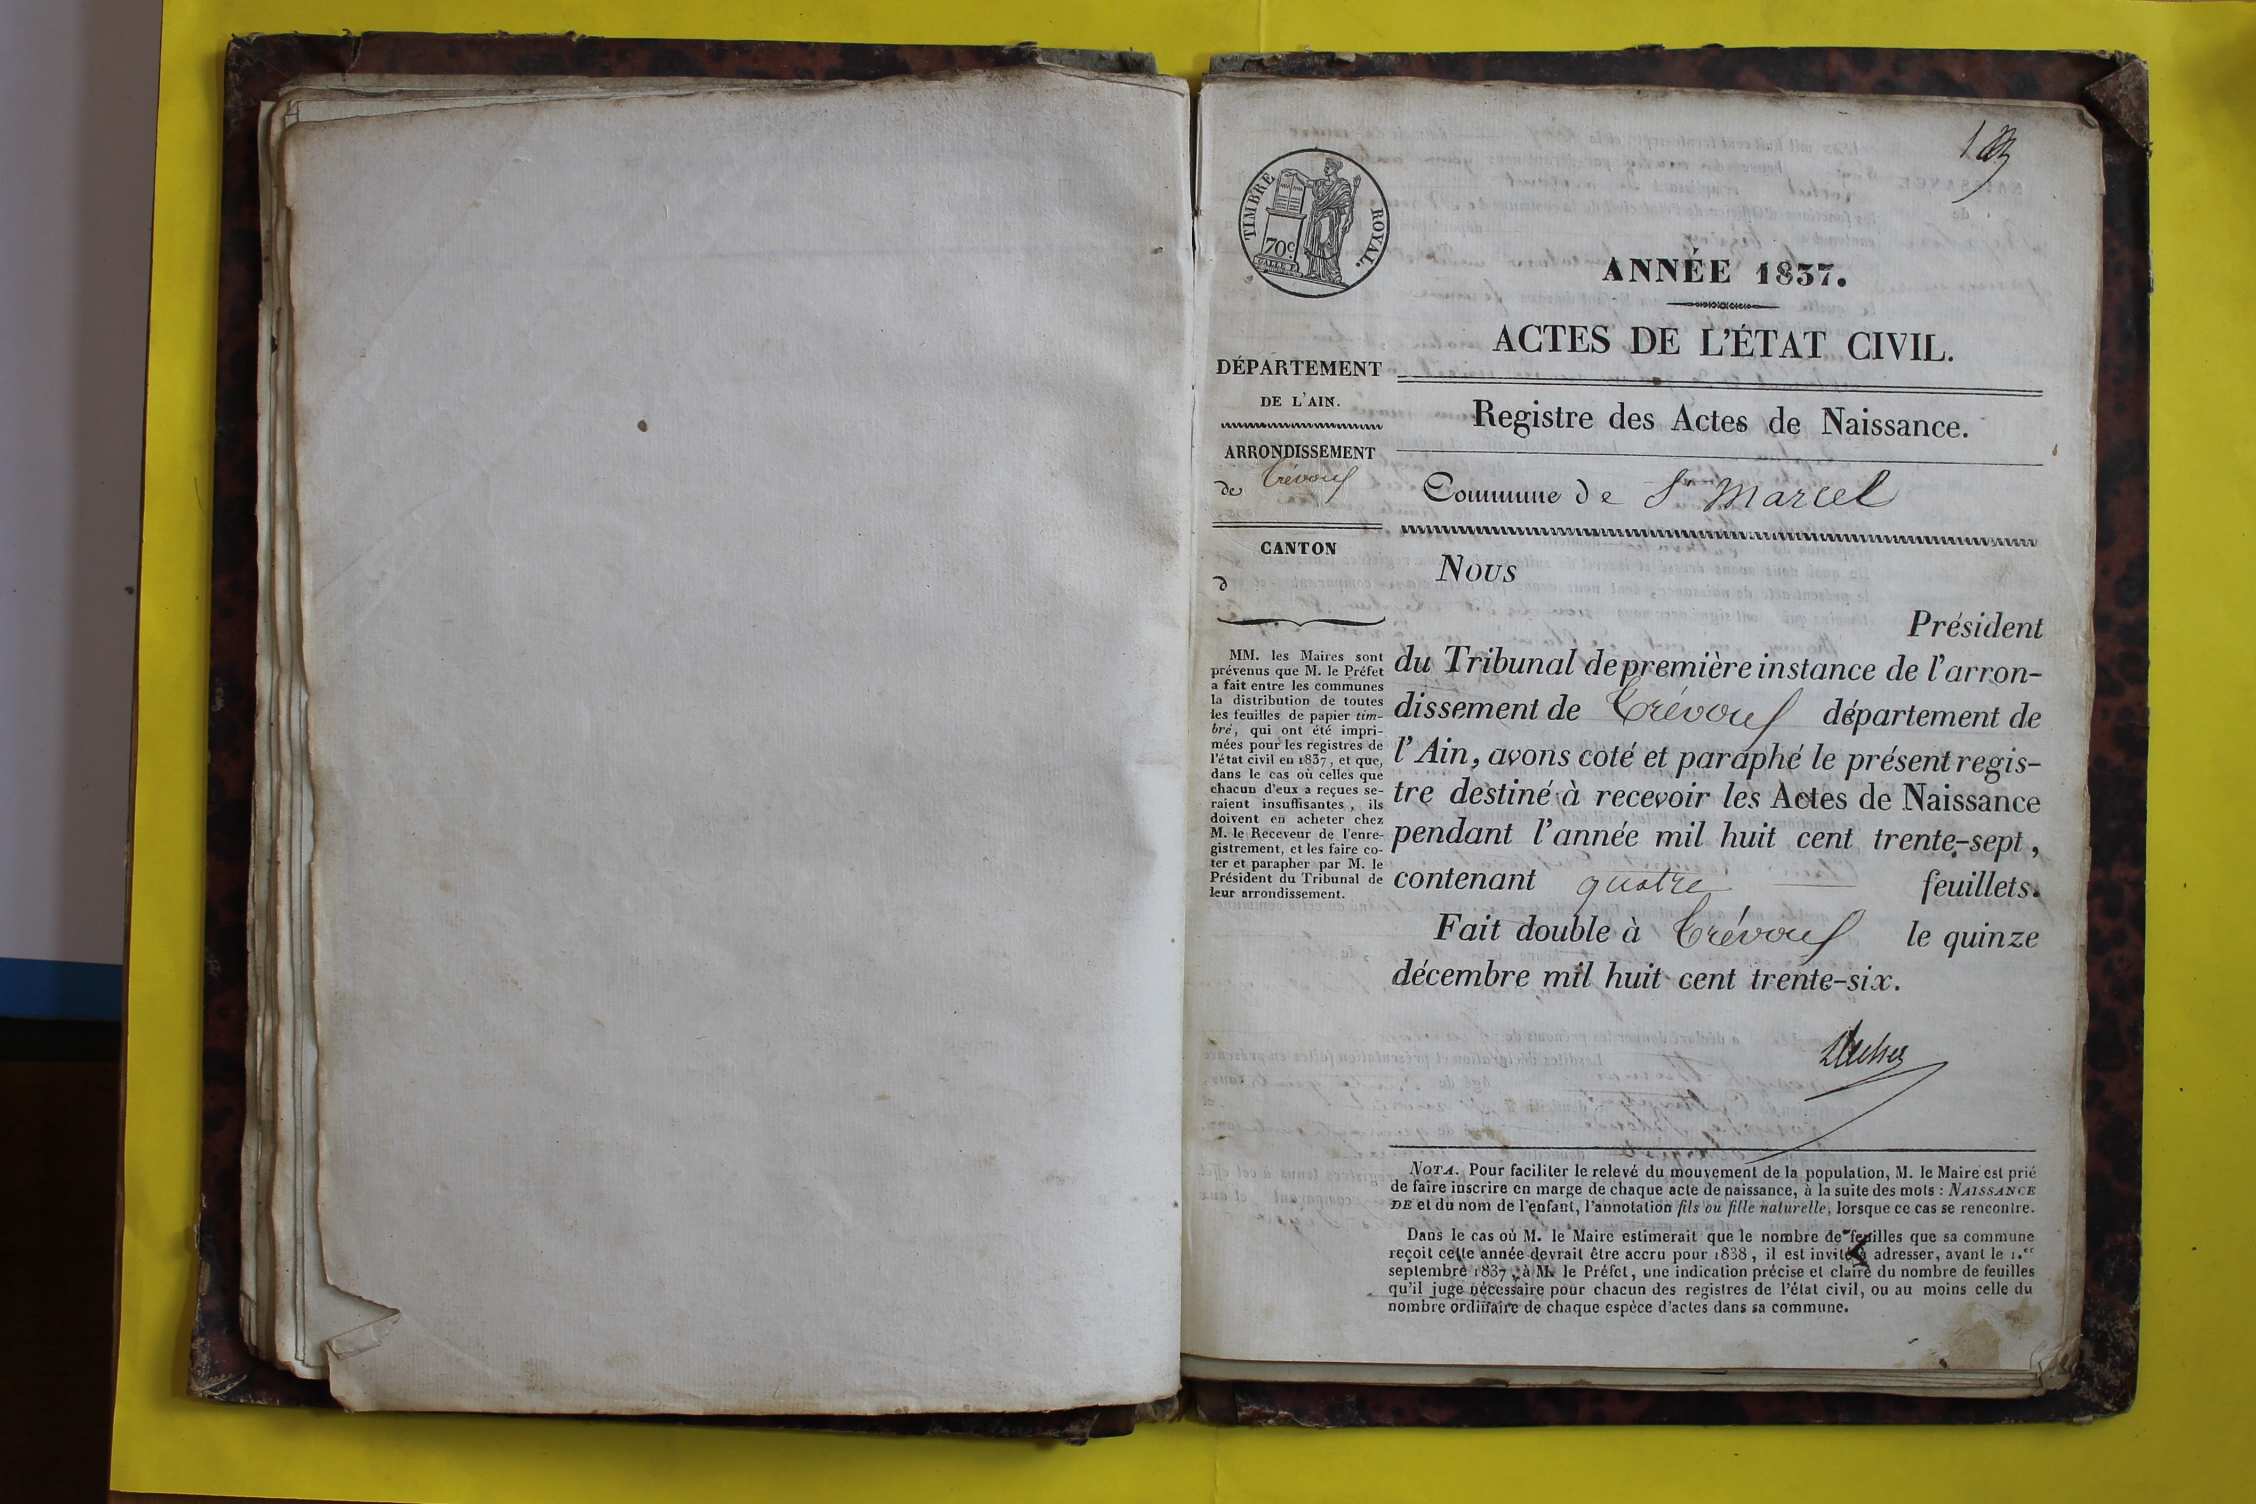 TIMBRE ROYAL.
70c
ANNÉE 1837.
ACTES DE L'ÉTAT CIVIL.
DÉPARTEMENT
DE L'AIN.
Registre des Actes de Naissance.
ARRONDISSEMENT
de Trévoux
Commune de St Marcel
CANTON
d
Nous
Président
du Tribunal de première instance de l'arron-
dissement de Trévoux département de
l'Ain, avons coté et paraphé le présent regis-
tre destiné à recevoir les Actes de Naissance
pendant l'année mil huit cent trente-sept,
contenant quatre feuillets.
Fait double à Trévoux le quinze
décembre mil huit cent trente-six.
MM. les Maires sont
prévenus que M. le Préfet
a fait entre les communes
la distribution de toutes
les feuilles de papier tim-
bré, qui ont été impri-
mées pour les registres de
l'état civil en 1837, et que,
dans le cas où celles que
chacun d'eux a reçues se-
raient insuffisantes, ils
doivent en acheter chez
M. le Receveur de l'enre-
gistrement, et les faire co-
ter et parapher par M. le
Président du Tribunal de
leur arrondissement.
NOTA. Pour faciliter le relevé du mouvement de la population, M. le Maire est prié
de faire inscrire en marge de chaque acte de naissance, à la suite des mots : NAISSANCE
DE et du nom de l'enfant, l'annotation fils ou fille naturelle, lorsque ce cas se rencontre.
Dans le cas où M. le Maire estimerait que le nombre de feuilles que sa commune
reçoit cette année devrait être accru pour 1838, il est invité à adresser, avant le 1.er
septembre 1837, à M. le Préfet, une indication précise et claire du nombre de feuilles
qu'il juge nécessaire pour chacun des registres de l'état civil, ou au moins celle du
nombre ordinaire de chaque espèce d'actes dans sa commune.